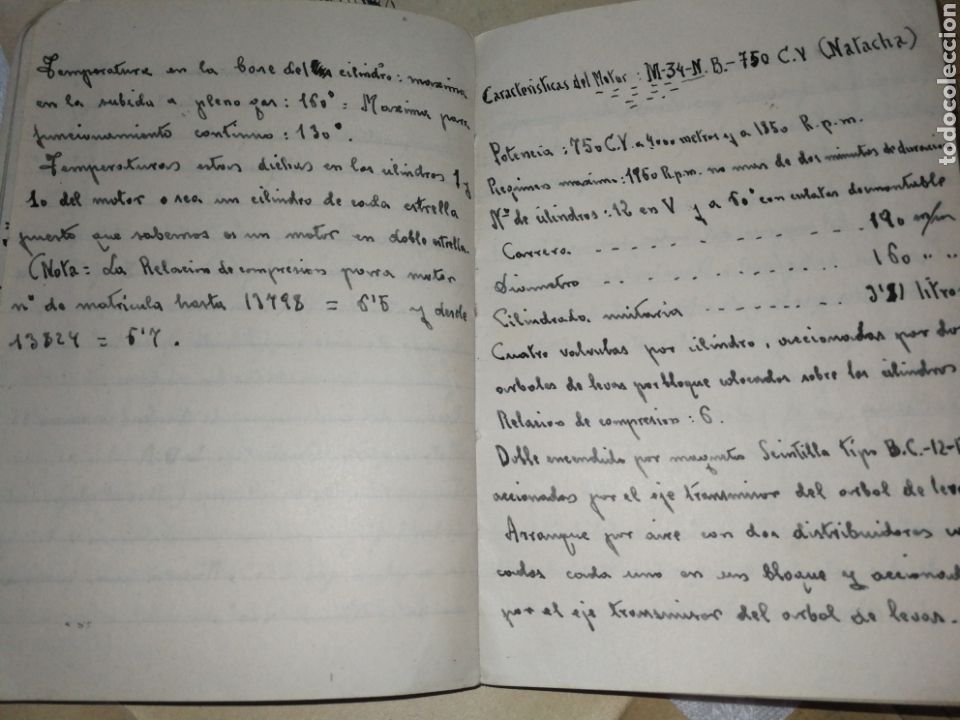 Temperatura en la base del cilindro: maxima
en la subida a pleno gas: 160° = Maxima para
funcionamiento continuo: 130°.
Temperaturas estas dichas en los cilindros 1 y
10 del motor o sea un cilindro de cada estrella
puesto que sabemos es un motor en doble estrella.
(Nota = La Relacion de compresion para motor
n° de matricula hasta 13798 = 6'5 y desde
13824 = 6'7.
Caracteristicas del Motor: M-34-N.B.-750 C.V (Natacha)
Potencia: 750 C.V. a 4000 metros y a 1850 R.p.m.
Regimen maximo: 1960 R.p.m. no mas de dos minutos de duracion
N° de cilindros: 12 en V y a 60° con culatas desmontable
Carrera 190 m/m
Diametro 160 " "
Cilindrada unitaria 3'81 litro
Cuatro valvulas por cilindro, accionadas por do
arboles de levas por bloque colocados sobre los cilindros
Relacion de compresion: 6.
Doble encendido por magneto Scintilla Tipo B.C.-12-
accionadas por el eje transmisor del arbol de leva
Arranque por aire con dos distribuidores co
cados cada uno en un bloque y accionad
por el eje transmisor del arbol de levas.
todocoleccion